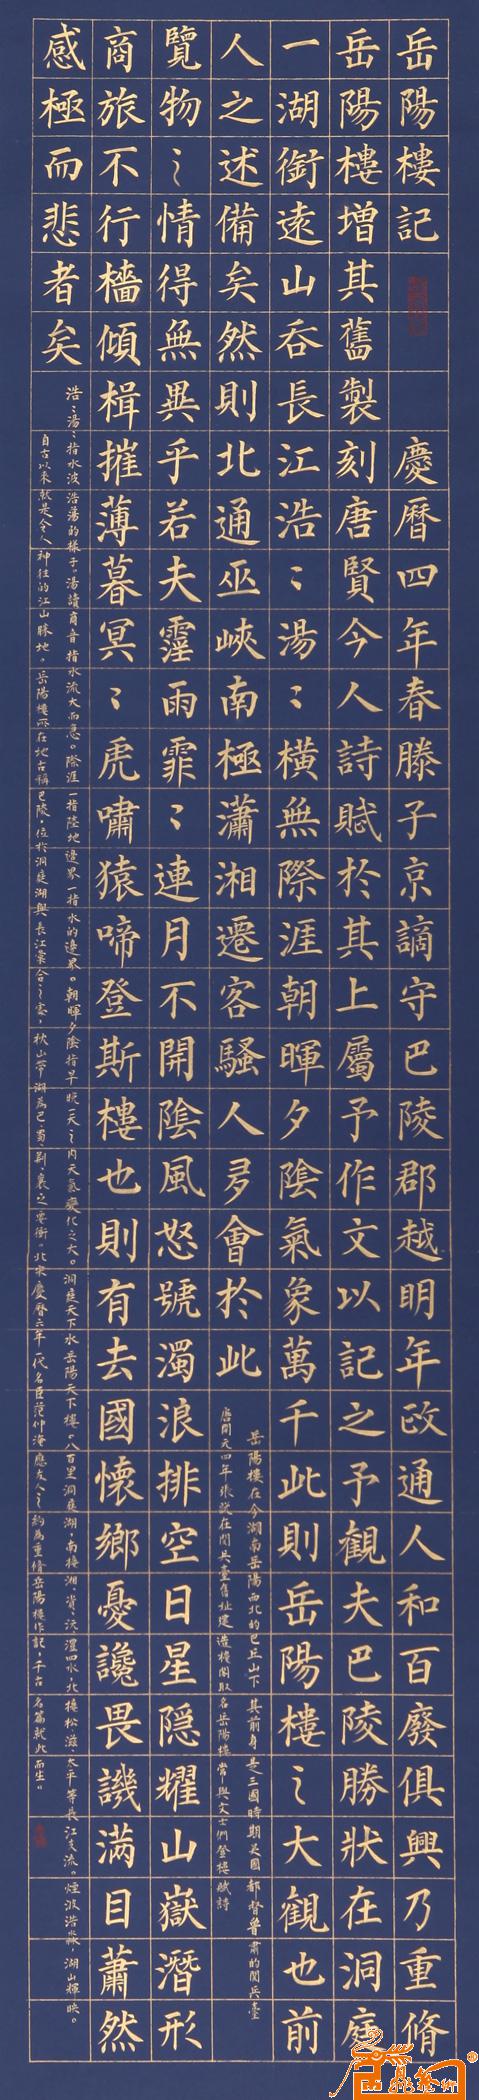 岳陽樓記 慶曆四年春滕子京謫守巴陵郡越明年政通人和百廢俱興乃重脩
岳陽樓增其舊製刻唐賢今人詩賦於其上屬予作文以記之予觀夫巴陵勝狀在洞庭
一湖銜遠山吞長江浩〻湯〻橫無際涯朝暉夕陰氣象萬千此則岳陽樓之大觀也前
人之述備矣然則北通巫峽南極瀟湘遷客騷人多會於此
岳陽樓在今湖南岳陽西北的巴丘山下 其前身是三國時期吳國都督魯肅的閱兵臺
唐開元四年張說在閱兵臺舊址建造樓閣取名岳陽樓常與文士們登樓賦詩
覽物之情得無異乎若夫霪雨霏〻連月不開陰風怒號濁浪排空日星隱耀山嶽潛形
商旅不行檣傾楫摧薄暮冥〻虎嘯猿啼登斯樓也則有去國懷鄉憂讒畏譏滿目蕭然
感極而悲者矣
浩〻湯〻指水波浩蕩的樣子。湯讀商音指水流大而急。際涯一指陸地邊界一指水的邊界。朝暉夕陰指早晚一天之內天氣變化之大。洞庭天下水岳陽天下樓。八百里洞庭湖，南接湘、資、沅、澧四水，北接松、滋、太平等長江支流。煙波浩淼，湖山輝映。
自古以來就是令人神往的江山勝地。岳陽樓所在地古稱巴陵，位於洞庭湖與長江彙合之處，枕山帶湖為巴、蜀、荊、襄之要衝。北宋慶曆六年一代名臣范仲淹應友人之約為重脩岳陽樓作記，千古名篇就此而生。